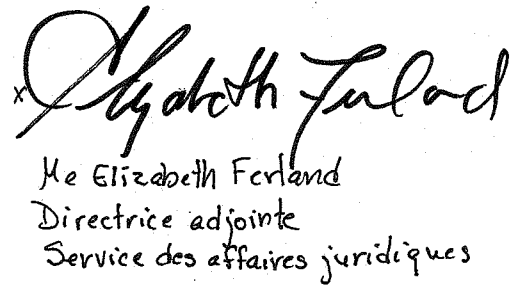 x Elizabeth Ferland
Me Elizabeth Ferland
Directrice adjointe
Service des affaires juridiques